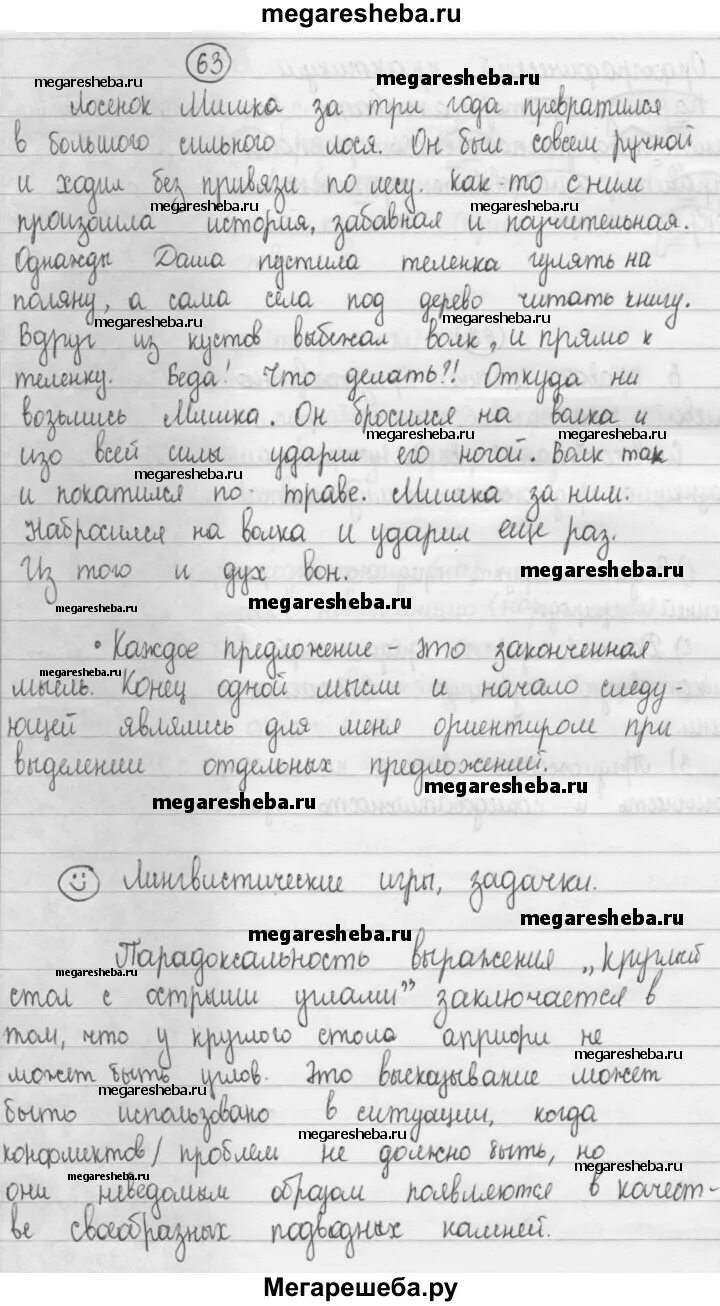 megaresheba.ru
63
megaresheba.ru
megaresheba.ru
Лосенок Мишка за три года превратился
в большого сильного лося. Он был совсем ручной
megaresheba.ru
и ходил без привязи по лесу. Как-то с ним
megaresheba.ru
megaresheba.ru
произошла история, забавная и поучительная.
Однажды Даша пустила теленка гулять на
поляну, а сама села под дерево читать книгу.
megaresheba.ru
megaresheba.ru
Вдруг из кустов выбежал волк, и прямо к
теленку. Беда! Что делать?! Откуда ни
megaresheba.ru
возьмись Мишка. Он бросился на волка и
megaresheba.ru
изо всей силы ударил его ногой. Волк так
megaresheba.ru
и покатился по траве. Мишка за ним.
Набросился на волка и ударил еще раз.
Из того и дух вон.
megaresheba.ru
megaresheba.ru
megaresheba.ru
• Каждое предложение - это законченная
megaresheba.ru
мысль. Конец одной мысли и начало следу-
ющей являлись для меня ориентиром при
выделении отдельных предложений.
megaresheba.ru
megaresheba.ru
Лингвистические игры, задачки.
megaresheba.ru
megaresheba.ru
Парадоксальность выражения „круглый
megaresheba.ru
стол с острыми углами” заключается в
том, что у круглого стола априори не
megaresheba.ru
может быть углов. Это высказывание может
megaresheba.ru
быть использовано в ситуации, когда
megaresheba.ru
конфликтов/проблем не должно быть, но
megaresheba.ru
megaresheba.ru
они неведомым образом появляются в качест-
ве своеобразных подводных камней.
Мегарешеба.ру